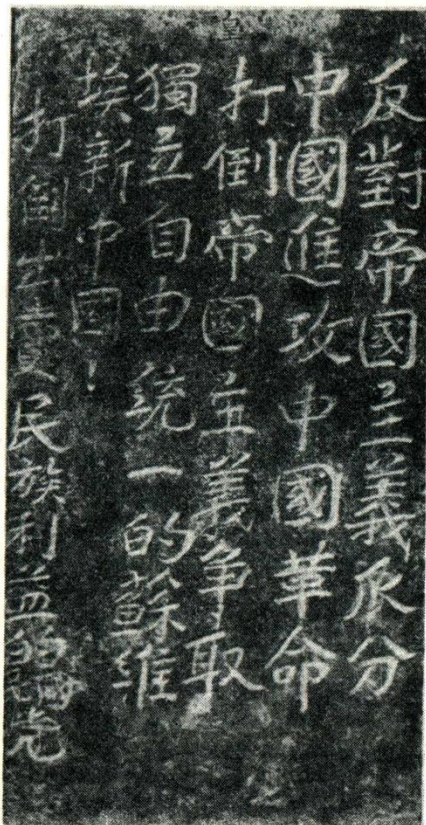 反對帝國主義瓜分
中國進攻中國革命
打倒帝國主義争取
獨立自由統一的蘇維
埃新中國！
打倒出賣民族利益的党